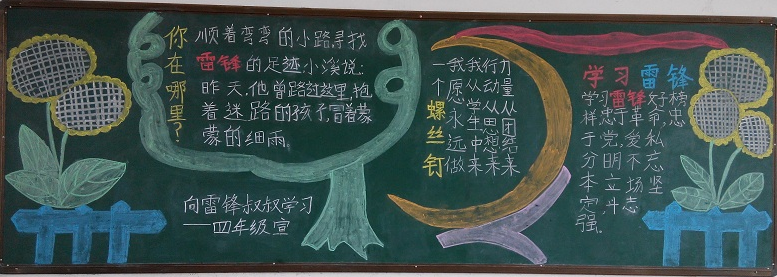 你在哪里？
顺着弯弯的小路,寻找
雷锋的足迹小溪说:
昨天,他曾路过这里,抱
着迷路的孩子,冒着蒙
蒙的细雨。
向雷锋叔叔学习
——四年级宣
力量从团结来
行动从思想来
我从学生中来
我愿永远做
一个螺丝钉
学习雷锋
学习雷锋好榜
样忠于革命忠
于党,爱私
分明不忘
本立场坚
定斗志
强。